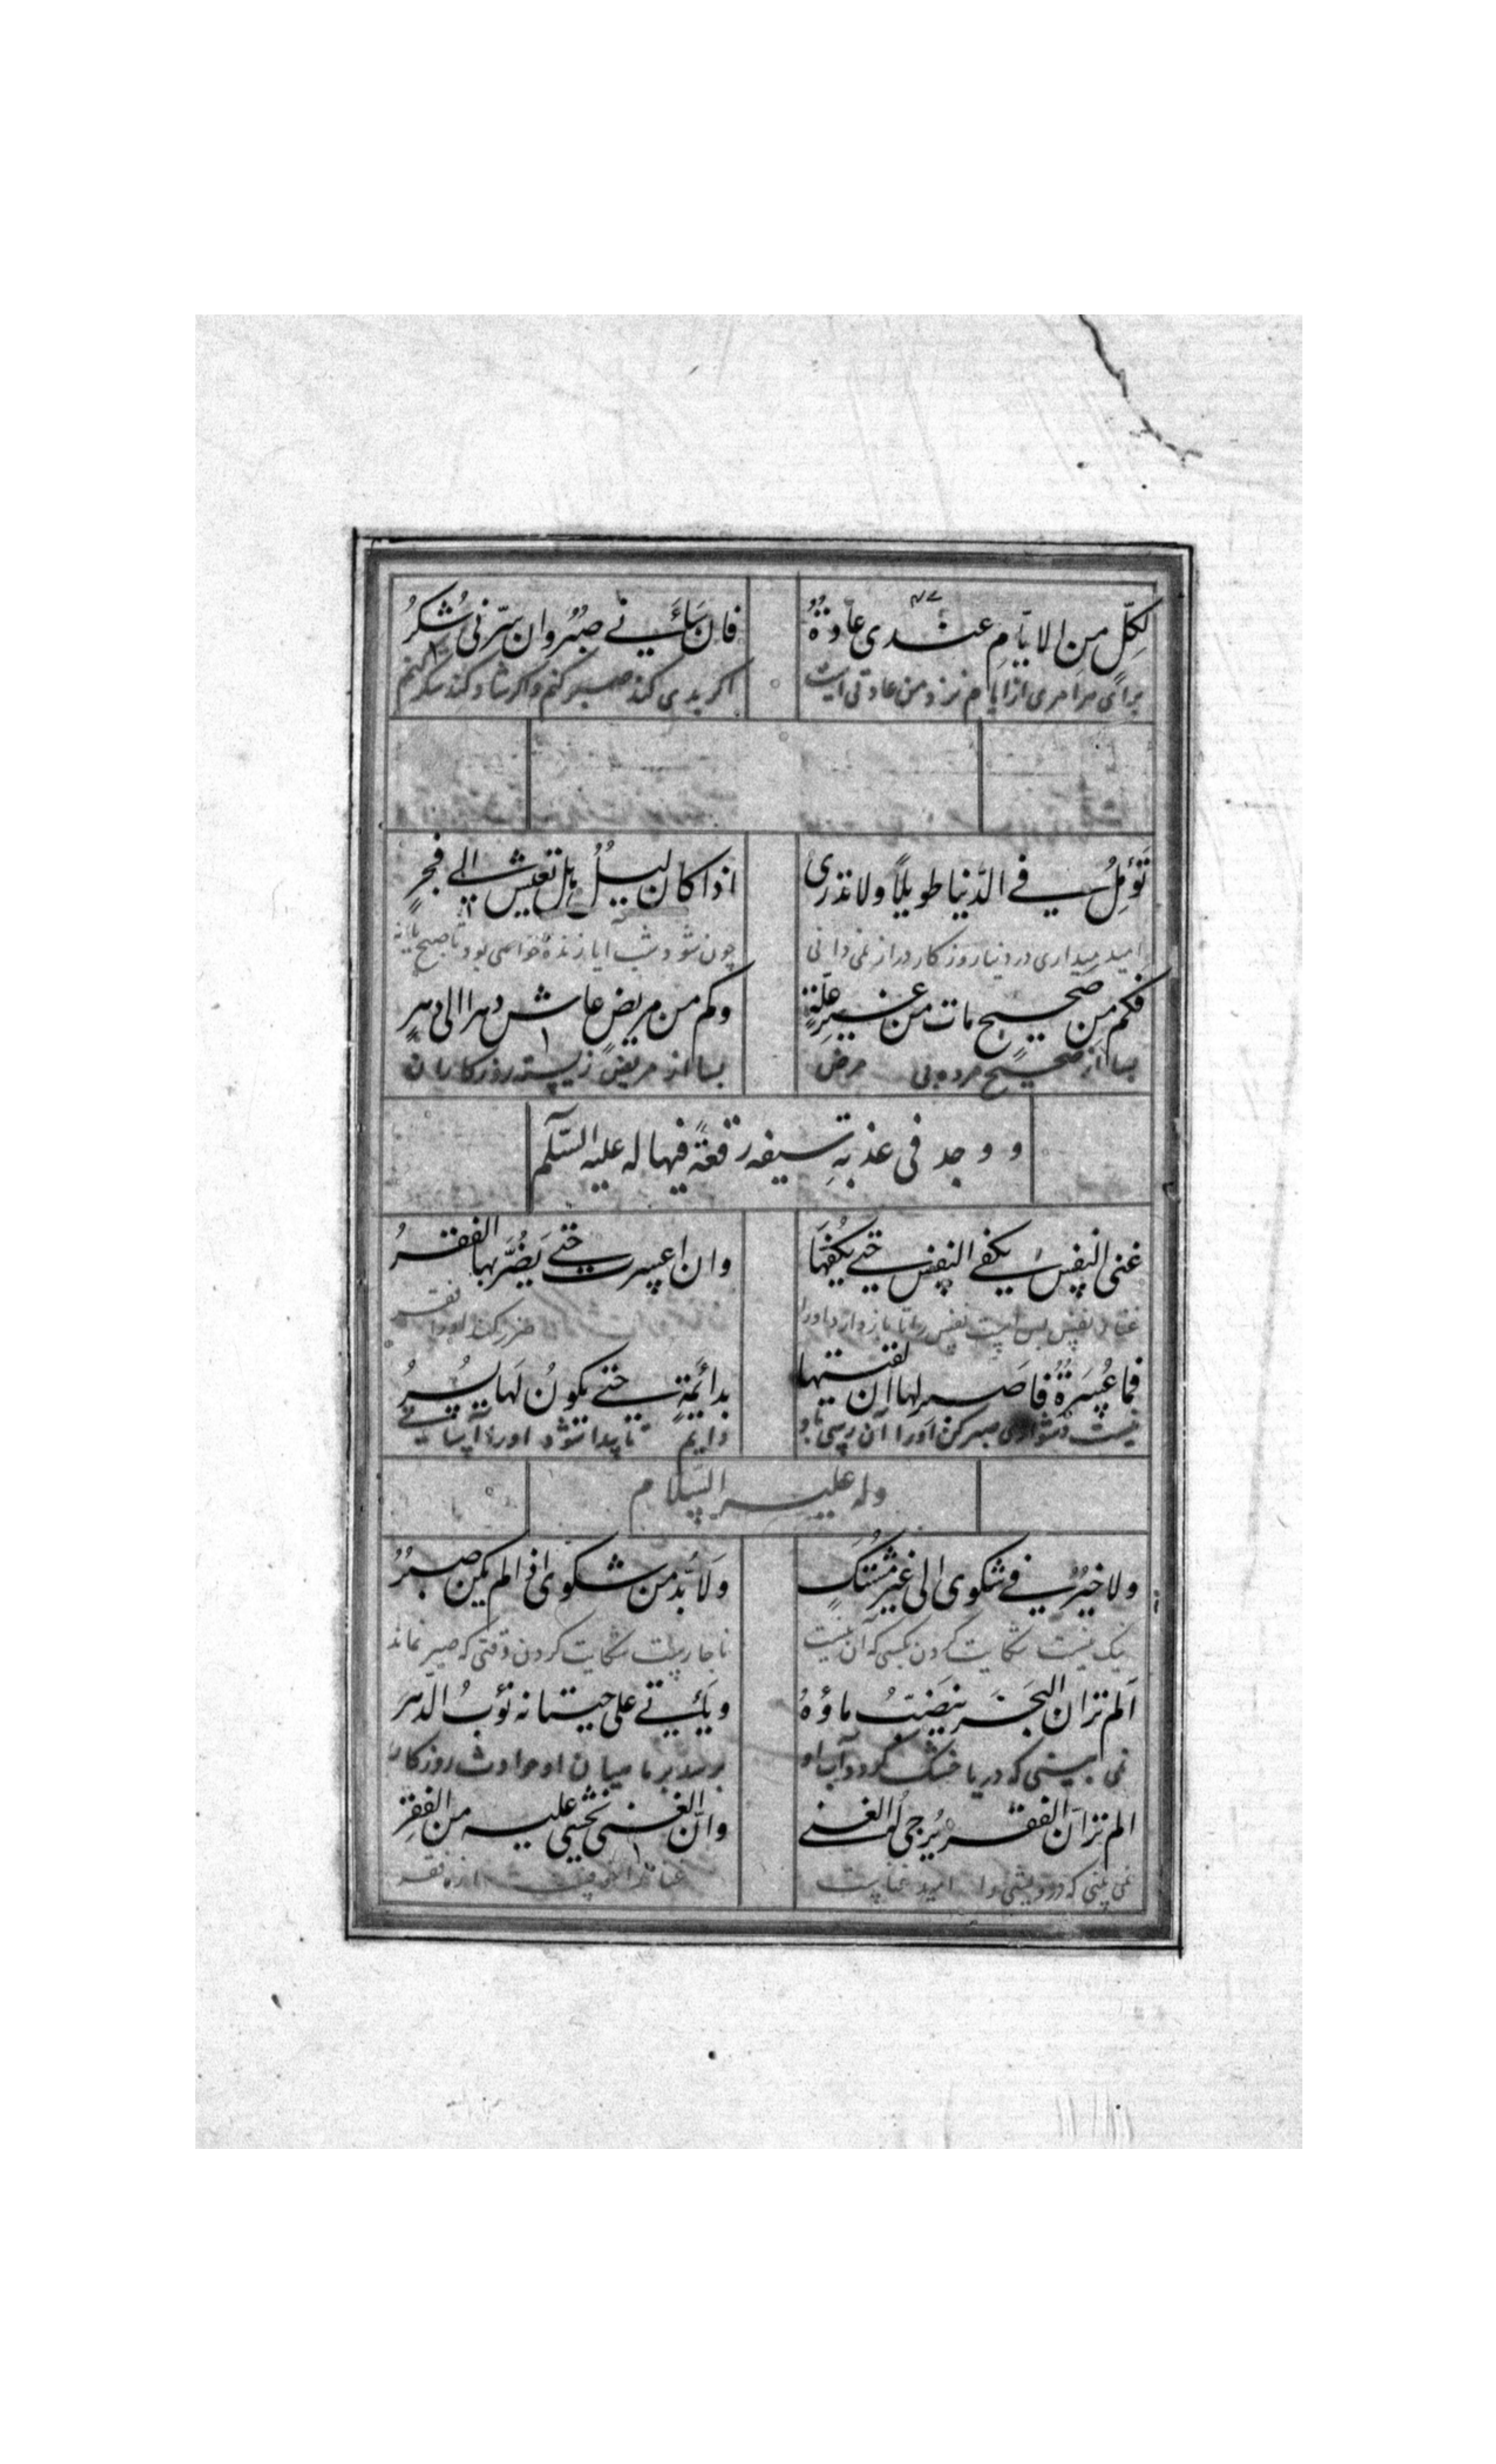 لِكلِّ مِن الايّامِ عندى عادةٌ فان سَاءَنے صبرٌ وان سرّنى شكرُ
برای هر امری از ایام نزد من عادتی است اکر بدی کند صبر کنم و اکر شاد کند شکر کنم
تُؤَمِّلُ فے الدّنيا طويلاً ولا تدرى اذا كان ليلٌ هل تعيش الے فجرٍ
امید میداری در دنیا روزکار دراز نمی دانی چون شود شب آیا زنده خواهی بود تا صبح یا نه
فكم مِن صحيحٍ مات من غيرِ علّةٍ وكم من مريضٍ عاش دهرا الى دهرٍ
بسا از صحیح مرده بی مرض بسا از مریض زیسته روزکاران
ووجد فى عذبةِ سيفه رقعةً فيها له عليه السّلم
غنى النفس يكفے النفس حتے يكفّها وان اعسرت حتے يَضُرَّ بها الفقرُ
نفس بس است نفس را تا باز دارد اورا ضرر کند اورا فقر
فما عُسرةٌ فاصبر لها ان لقيتها بدائمةٍ حتے يكونُ لَها يُسرُ
نیست دشواری صبر کن اورا آن رسی دایم تا پیدا شود اورا آسانے
وله عليه السّلام
ولا خيرَ فے شكوى الى غير مُشتكٍ ولا بُدّ من شكوى اذا لم يكن صبرُ
نیک نیست شکایت کردن بکسی که آن نیست ناچار است شکایت کردن وقتی که صبر نماند
اَلم تر ان البحَرَ ينضبُ ماؤهُ ويأتے على حيتانه نُوَبُ الدّهرِ
نمی بینی که دریا خشک کردد آب او برسد بر ماهیان او حوادث روزکار
الم تر اَنّ الفقر يُرجى لهُ الغنے وانّ الغنى يُخشى عليه من الفقرِ
نمی بینی که درویشی را امید غناست از فقر